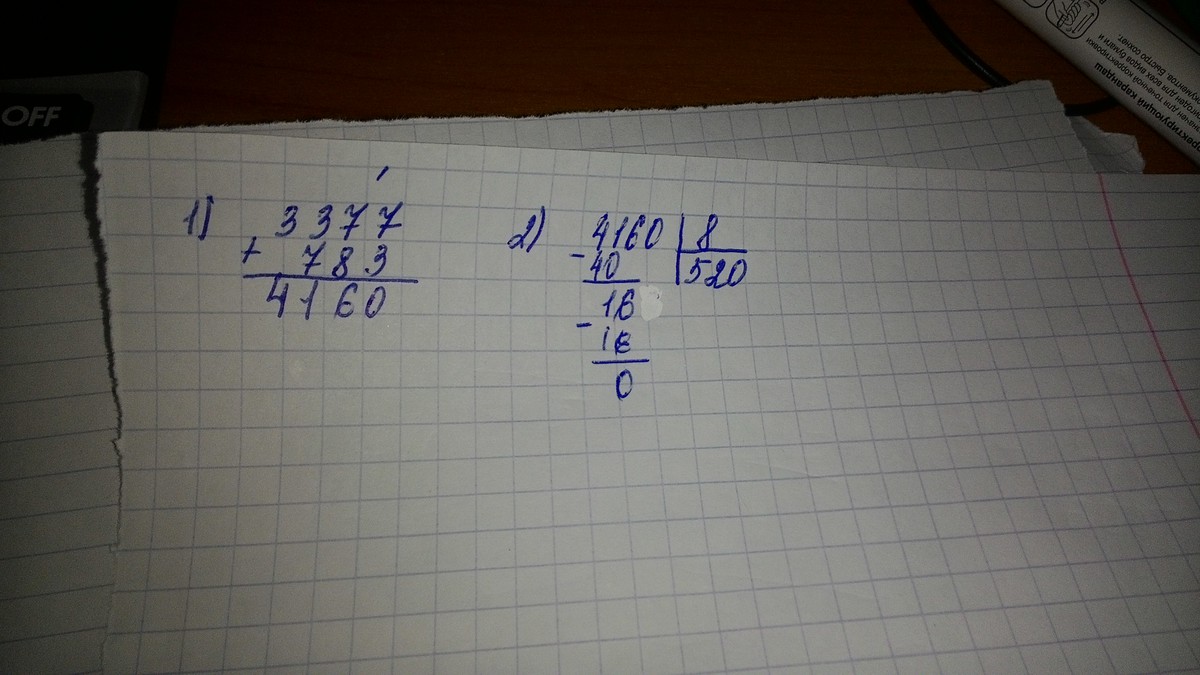 OFF
ректирующий карандаш
для точечной корректировки
для всех видов бумаги и
документов. Быстро сохнет.
1) 3377
+ 783
4160
2) 4160 | 8
- 40 | 520
16
- 16
0